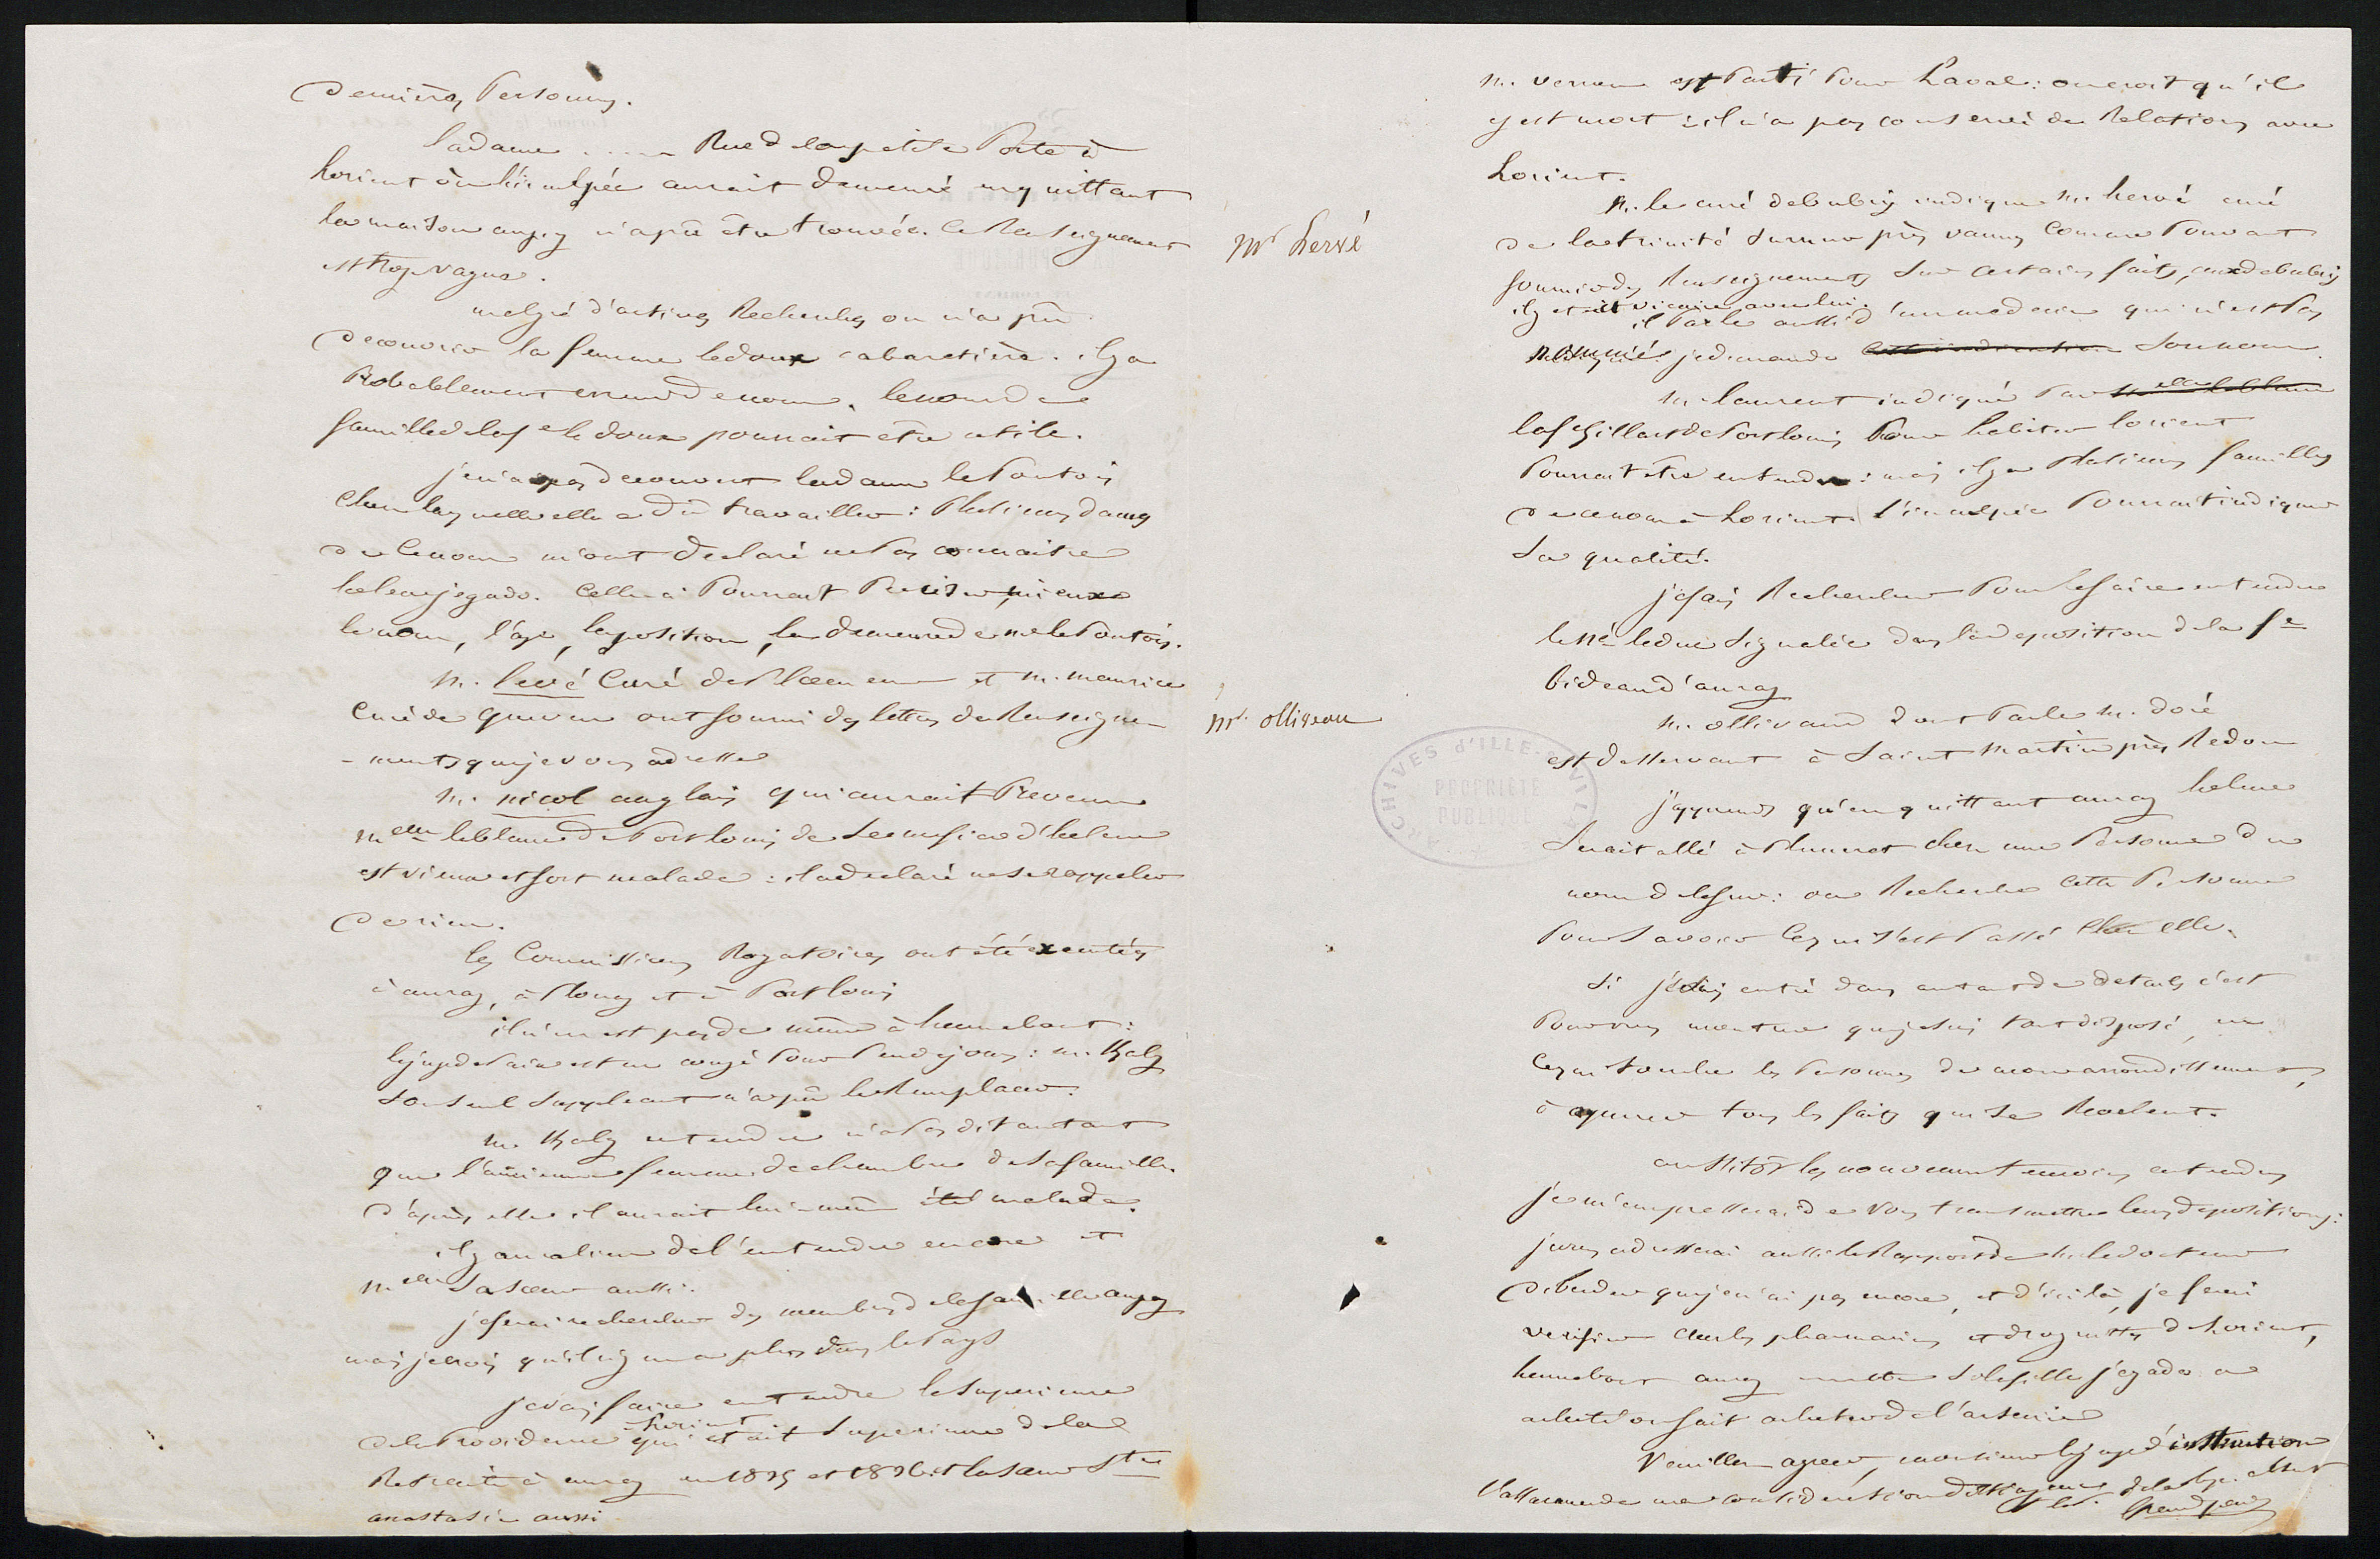 dernières Personnes.
la dame ..... Rue de la petite Porte à
Lorient où l'inculpée aurait demeuré en quittant
la maison aupy n'a pu être trouvée. ce Renseignement
est trop vague.
malgré d'actives Recherches on n'a pu
decouvrir la femme ledoux cabaretière. il y a
Probablement erreur de nom. le nom de
famille de la fe ledoux pourrait être utile.
je n'ai pas decouvert la dame le Pontois
chez laquelle elle a dû travailler : Plusieurs dames
de ce nom m'ont déclaré ne pas connaitre
helene jegado. Celle ci Pourrait Préciser mieux
le nom, l'age, la position, la demeure de me le Pontois.
m. levé Curé de Ploemeur et m. maurice
Curé de gueven ont fourni des lettres de Renseigne-
-ments que je vous adresse
m. nicol anglais qui aurait Prevenu
melle leblanc de Port louis de se mefier d'helene
est vieux et fort malade : il a declaré ne se rappeler
de rien.
les Commissions Rogatoires ont été executées
à auray, à Plouay et à Port louis
il n'en est pas de même à hennebont :
le juge de Paix est en congé Pour Peu de jours : m. Kaly
son seul Suppléant n'a pu le Remplacer.
m. Kaly entendu n'a Pas dit autant
que l'ancienne femme de chambre de sa famille.
d'après elle il aurait lui-même été malade.
il y aura lieu de l'entendre encore et
melle sa soeur aussi.
je ferai rechercher des membres de la famille aupy
mais je crois qu'il n'y en a plus dans le Pays
je vais faire entendre la Superieure
de la Providence Lorient qui etait Superieure de la
Retraite à auray en 1835 et 1836 et la soeur Ste
anastasie aussi
Mr hervé
Mr. ollivaux
m. verron est Parti Pour Laval : on croit qu'il
y est mort : il n'a pas conservé de Relations avec
Lorient.
m. le curé de bubry indique m. hervé curé
de la trinité surzur près vannes Comme Pouvant
fournir des Renseignements sur certains faits, ceux de bubry
il y etait vicaire avec lui.
il Parle aussi d'un medecin qui n'est Pas
nommé. je demande son nom.
m. laurent indiqué Par melle leblanc
la fe Gillart de Port louis Pour habiter lorient
Pourrait être entendu : mais il y a Plusieurs familles
de ce nom à Lorient. l'inculpée Pourrait indiquer
sa qualité.
je fais Rechercher Pour le faire entendre
le né leduc signalée dans la deposition de la fe
bideau d'auray
m. ollivaux dont Parle m. doré
est desservant à Saint Martin près Redon
j'apprends qu'en quittant auray helene
serait allé à Plumeret chez une Personne du
nom de lefur : on Recherche cette Personne
Pour savoir ce qui s'est Passé chez elle.
si je suis entré dans autant de details c'est
Pour vous montrer que je suis tout disposé, en
ce qui touche les Personnes de mon arrondissement,
à epurer tous les faits qui se Revelent.
aussitôt les nouveaux temoins entendus
je m'empresserai de vous transmettre leurs depositions :
je vous adresserai aussi le Rapport de m. le docteur
debudor que je n'ai pas encore, et d'ici là, je ferai
verifier chez les pharmaciens et droguistes de Lorient,
hennebont auray si la fille jegado a
acheté ou fait acheter de l'arsenic
Veuillez agreer, monsieur le juge d'instruction
l'assurance de ma consideration distinguée
ARCHIVES D'ILLE-&-VILAINE
PROPRIÉTÉ
PUBLIQUE